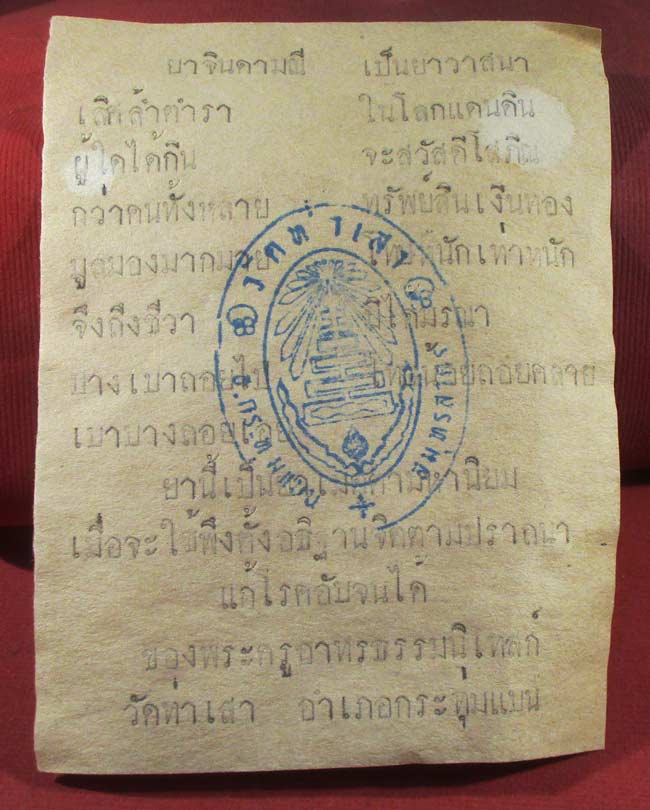 ยาจินดามณี เป็นยาวาสนา
เลิศล้ำตำรา ในโลกแดนดิน
ผู้ใดได้กิน จะสวัสดีโสภิณ
กว่าคนทั้งหลาย ทรัพย์สินเงินทอง
มูลมองมากมาย โทษหนักเท่าหนัก
จึงถึงชีวา มิได้มรณา
บางเบาถอยไป โทษน้อยถอยคลาย
เบาบางถอยเอย
ยานี้เป็นยาเมตตามหานิยม
เมื่อจะใช้พึงตั้งอธิฐานจิตตามปราถนา
แก้โรคอับจนได้
ของพระครูอาทรธรรมนิเทสก์
วัดท่าเสา อำเภอกระทุ่มแบน
วัดท่าเสา
อ.กระทุ่มแบน
สมุทรสาคร